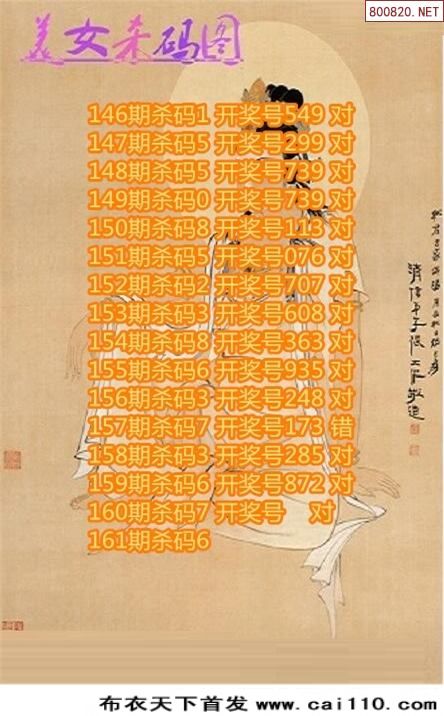 800820.NET
美女杀码图
146期杀码1 开奖号549 对
147期杀码5 开奖号299 对
148期杀码5 开奖号739 对
149期杀码0 开奖号739 对
150期杀码8 开奖号113 对
151期杀码5 开奖号076 对
152期杀码2 开奖号707 对
153期杀码3 开奖号608 对
154期杀码8 开奖号363 对
155期杀码6 开奖号935 对
156期杀码3 开奖号248 对
157期杀码7 开奖号173 错
158期杀码3 开奖号285 对
159期杀码6 开奖号872 对
160期杀码7 开奖号 对
161期杀码6
布衣天下首发 www.cai110.com